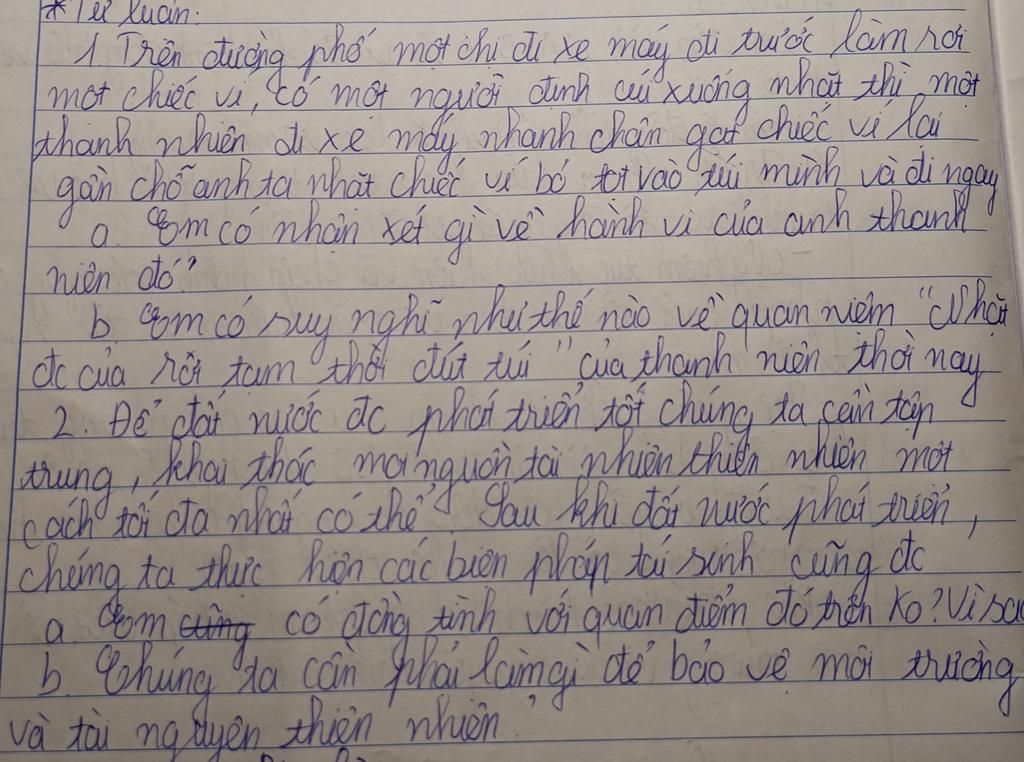 * Tự luận:
1. Trên đường phố một chị đi xe máy đi trước làm rơi
một chiếc ví, có một người định cúi xuống nhặt thì một
thanh nhiên đi xe máy nhanh chân gạt chiếc ví lại
gần chỗ anh ta nhặt chiếc ví bỏ tọt vào túi mình và đi ngay
a. Em có nhận xét gì về hành vi của anh thanh
niên đó?
b. Em có suy nghĩ như thế nào về quan niệm "Nhặt
đc của rơi tạm thời đút túi" của thanh niên thời nay
2. Để đất nước đc phát triển tốt chúng ta cần tập
trung, khai thác mọi nguồn tài nhiên thiên nhiên một
cách tối đa nhất có thể. Sau khi đất nước phát triển,
chúng ta thực hiện các biện pháp tái sinh cũng đc
a. Em cũng có đồng tình với quan điểm đó trên ko? Vì sao
b. Chúng ta cần phải làm gì để bảo vệ môi trường
và tài nguyên thiên nhiên?